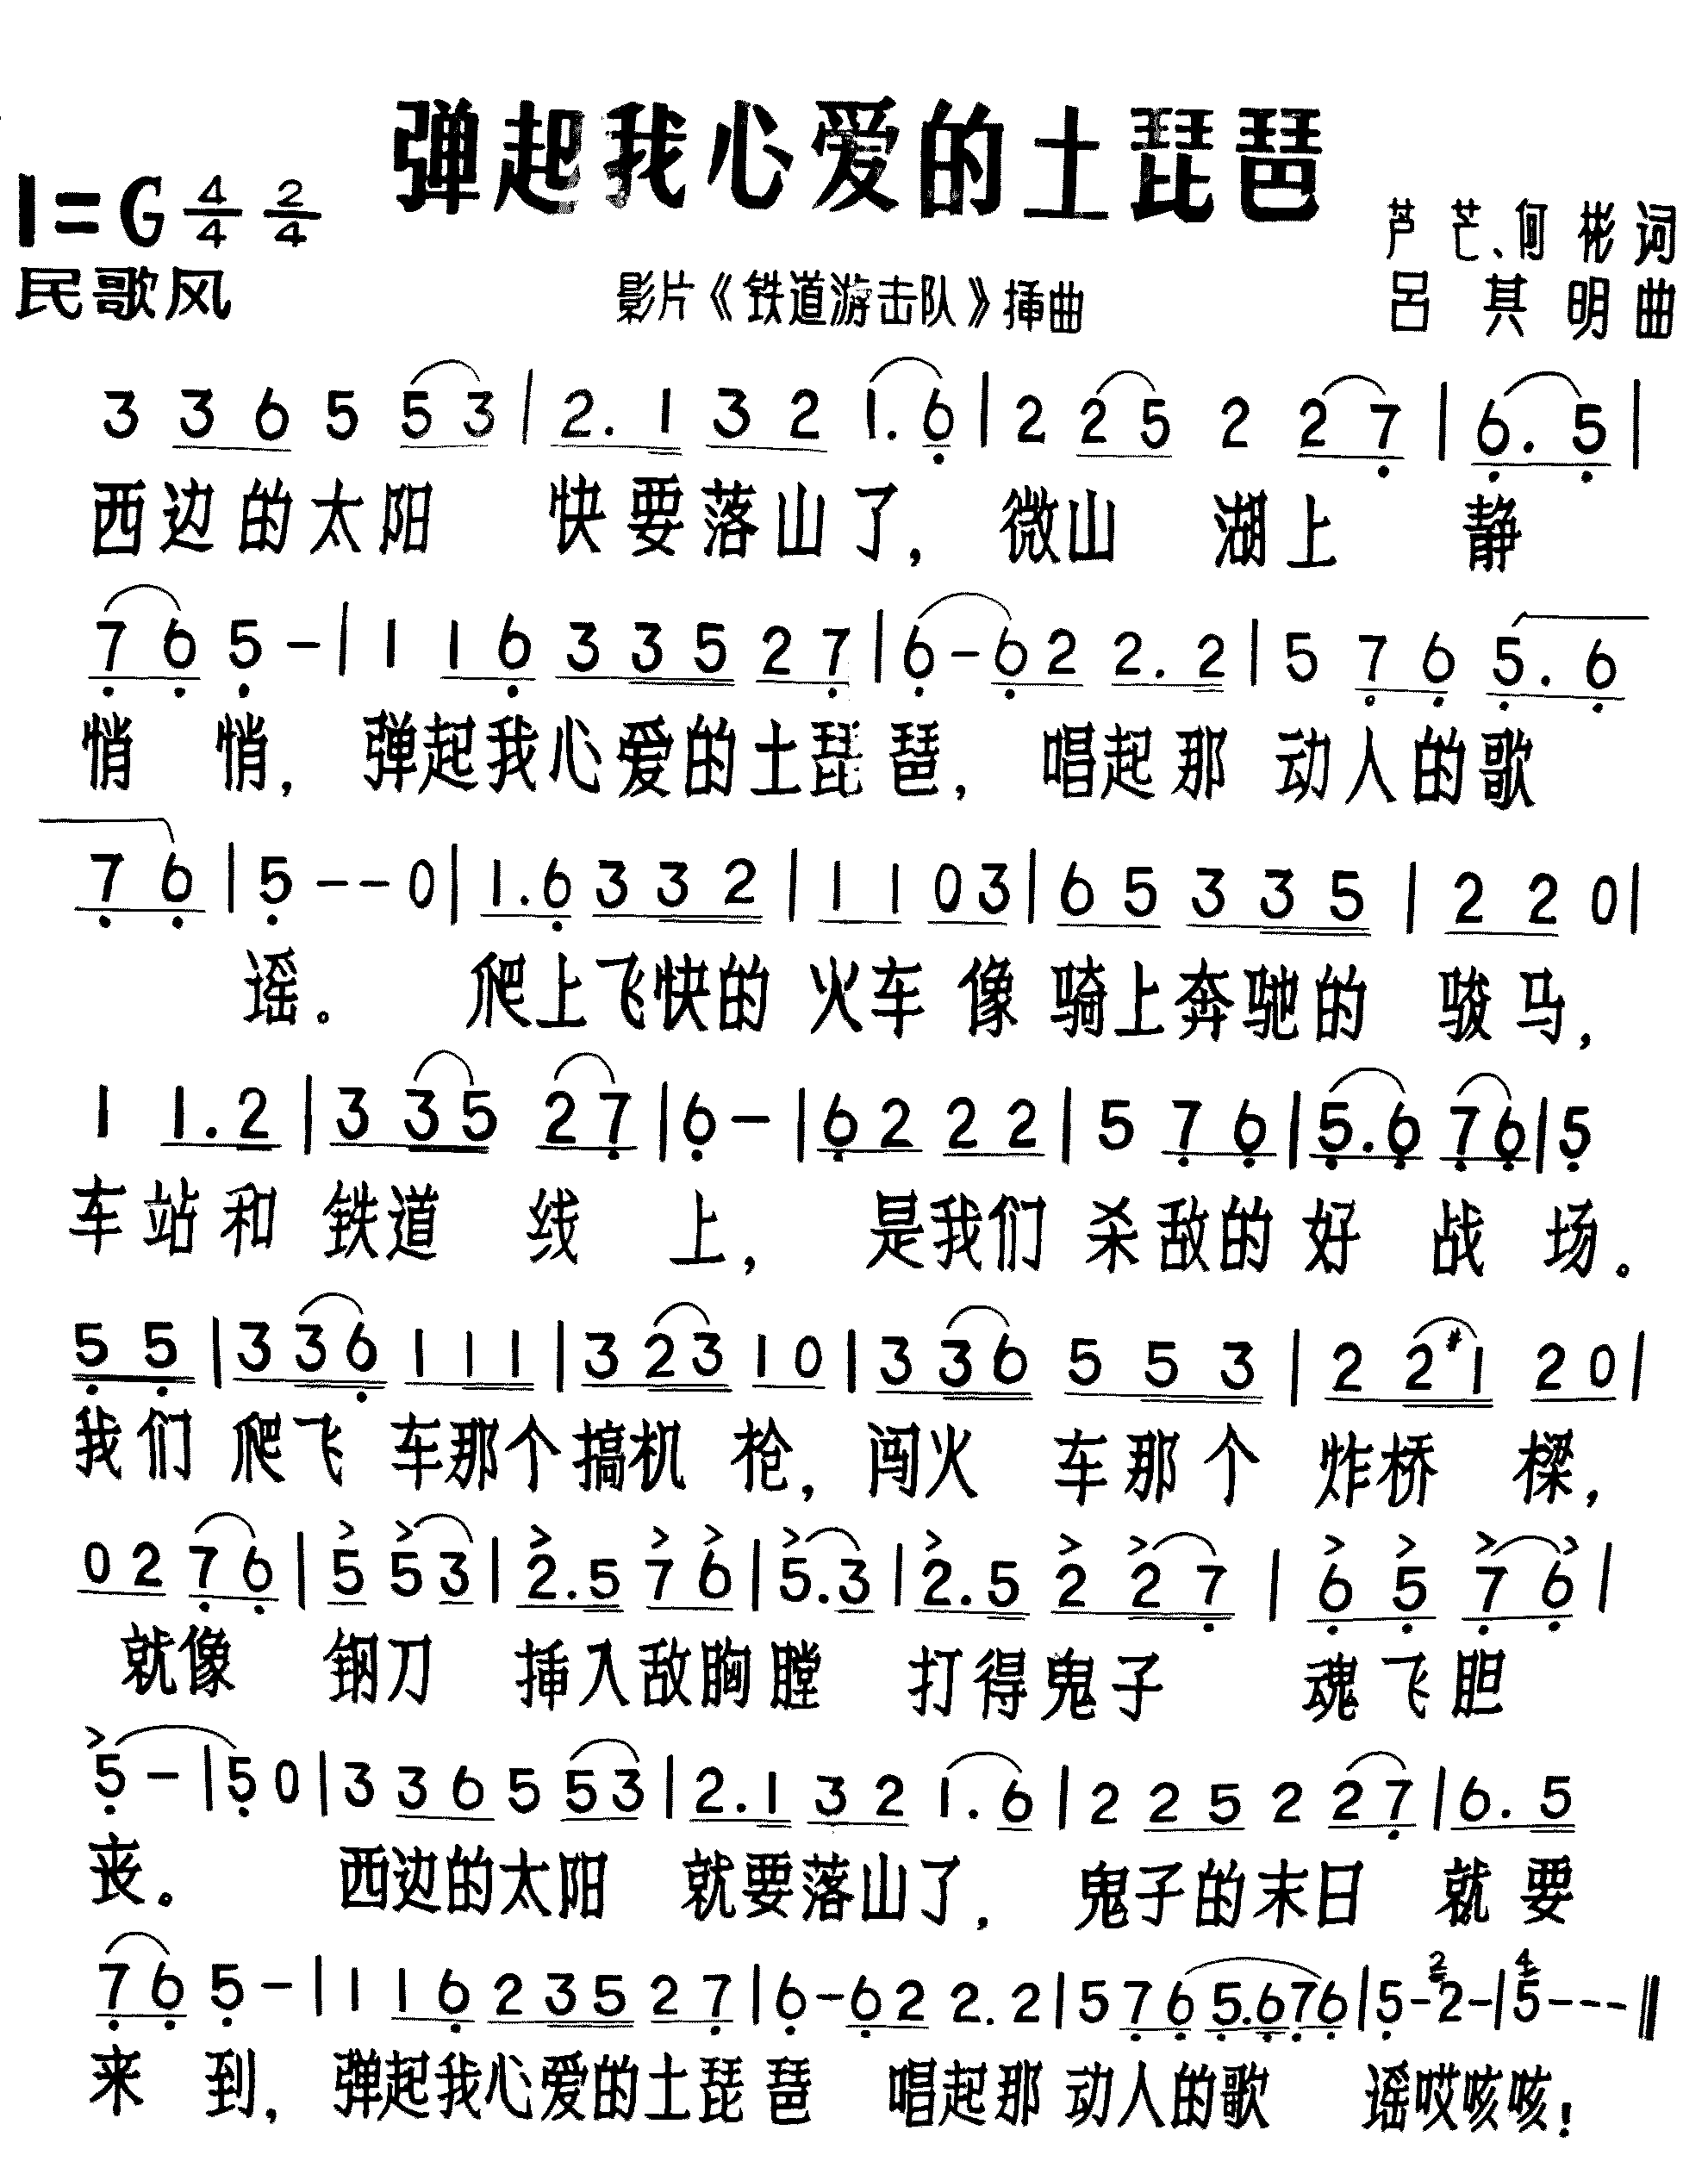 弹起我心爱的土琵琶
1=G 4/4 2/4
芦芒、何彬词
民歌风
影片《铁道游击队》插曲
吕其明曲
3 3 6 5 5 3 | 2. 1 3 2 1. 6 | 2 2 5 2 2 7 | 6. 5 |
西边的太阳 快要落山了, 微山 湖上 静
7 6 5 - | 1 1 6 3 3 5 2 7 | 6 - 6 2 2. 2 | 5 7 6 5. 6
悄 悄, 弹起我心爱的土琵琶, 唱起那 动人的歌
7 6 | 5 - - 0 | 1. 6 3 3 2 | 1 1 0 3 | 6 5 3 3 5 | 2 2 0 |
谣。 爬上飞快的 火车 像 骑上奔驰的 骏马,
1 1. 2 | 3 3 5 2 7 | 6 - | 6 2 2 2 | 5 7 6 | 5. 6 7 6 | 5
车站和 铁道 线 上, 是我们 杀敌的 好 战 场。
5 5 | 3 3 6 1 1 1 | 3 2 3 1 0 | 3 3 6 5 5 3 | 2 2 #1 2 0 |
我们 爬飞 车那个搞机 枪, 闯火 车那个 炸桥 樑,
0 2 7 6 | 5 5 3 | 2. 5 7 6 | 5. 3 | 2. 5 2 2 7 | 6 5 7 6 |
就像 钢刀 插入敌胸膛 打得鬼子 魂飞胆
5 - | 5 0 | 3 3 6 5 5 3 | 2. 1 3 2 1. 6 | 2 2 5 2 2 7 | 6. 5
丧。 西边的太阳 就要落山了, 鬼子的末日 就要
7 6 5 - | 1 1 6 2 3 5 2 7 | 6 - 6 2 2. 2 | 5 7 6 5. 6 7 6 | 5 - 2 2 - | 4 5 - - - ‖
来 到, 弹起我心爱的土琵琶 唱起那 动人的歌 谣哎咳咳!